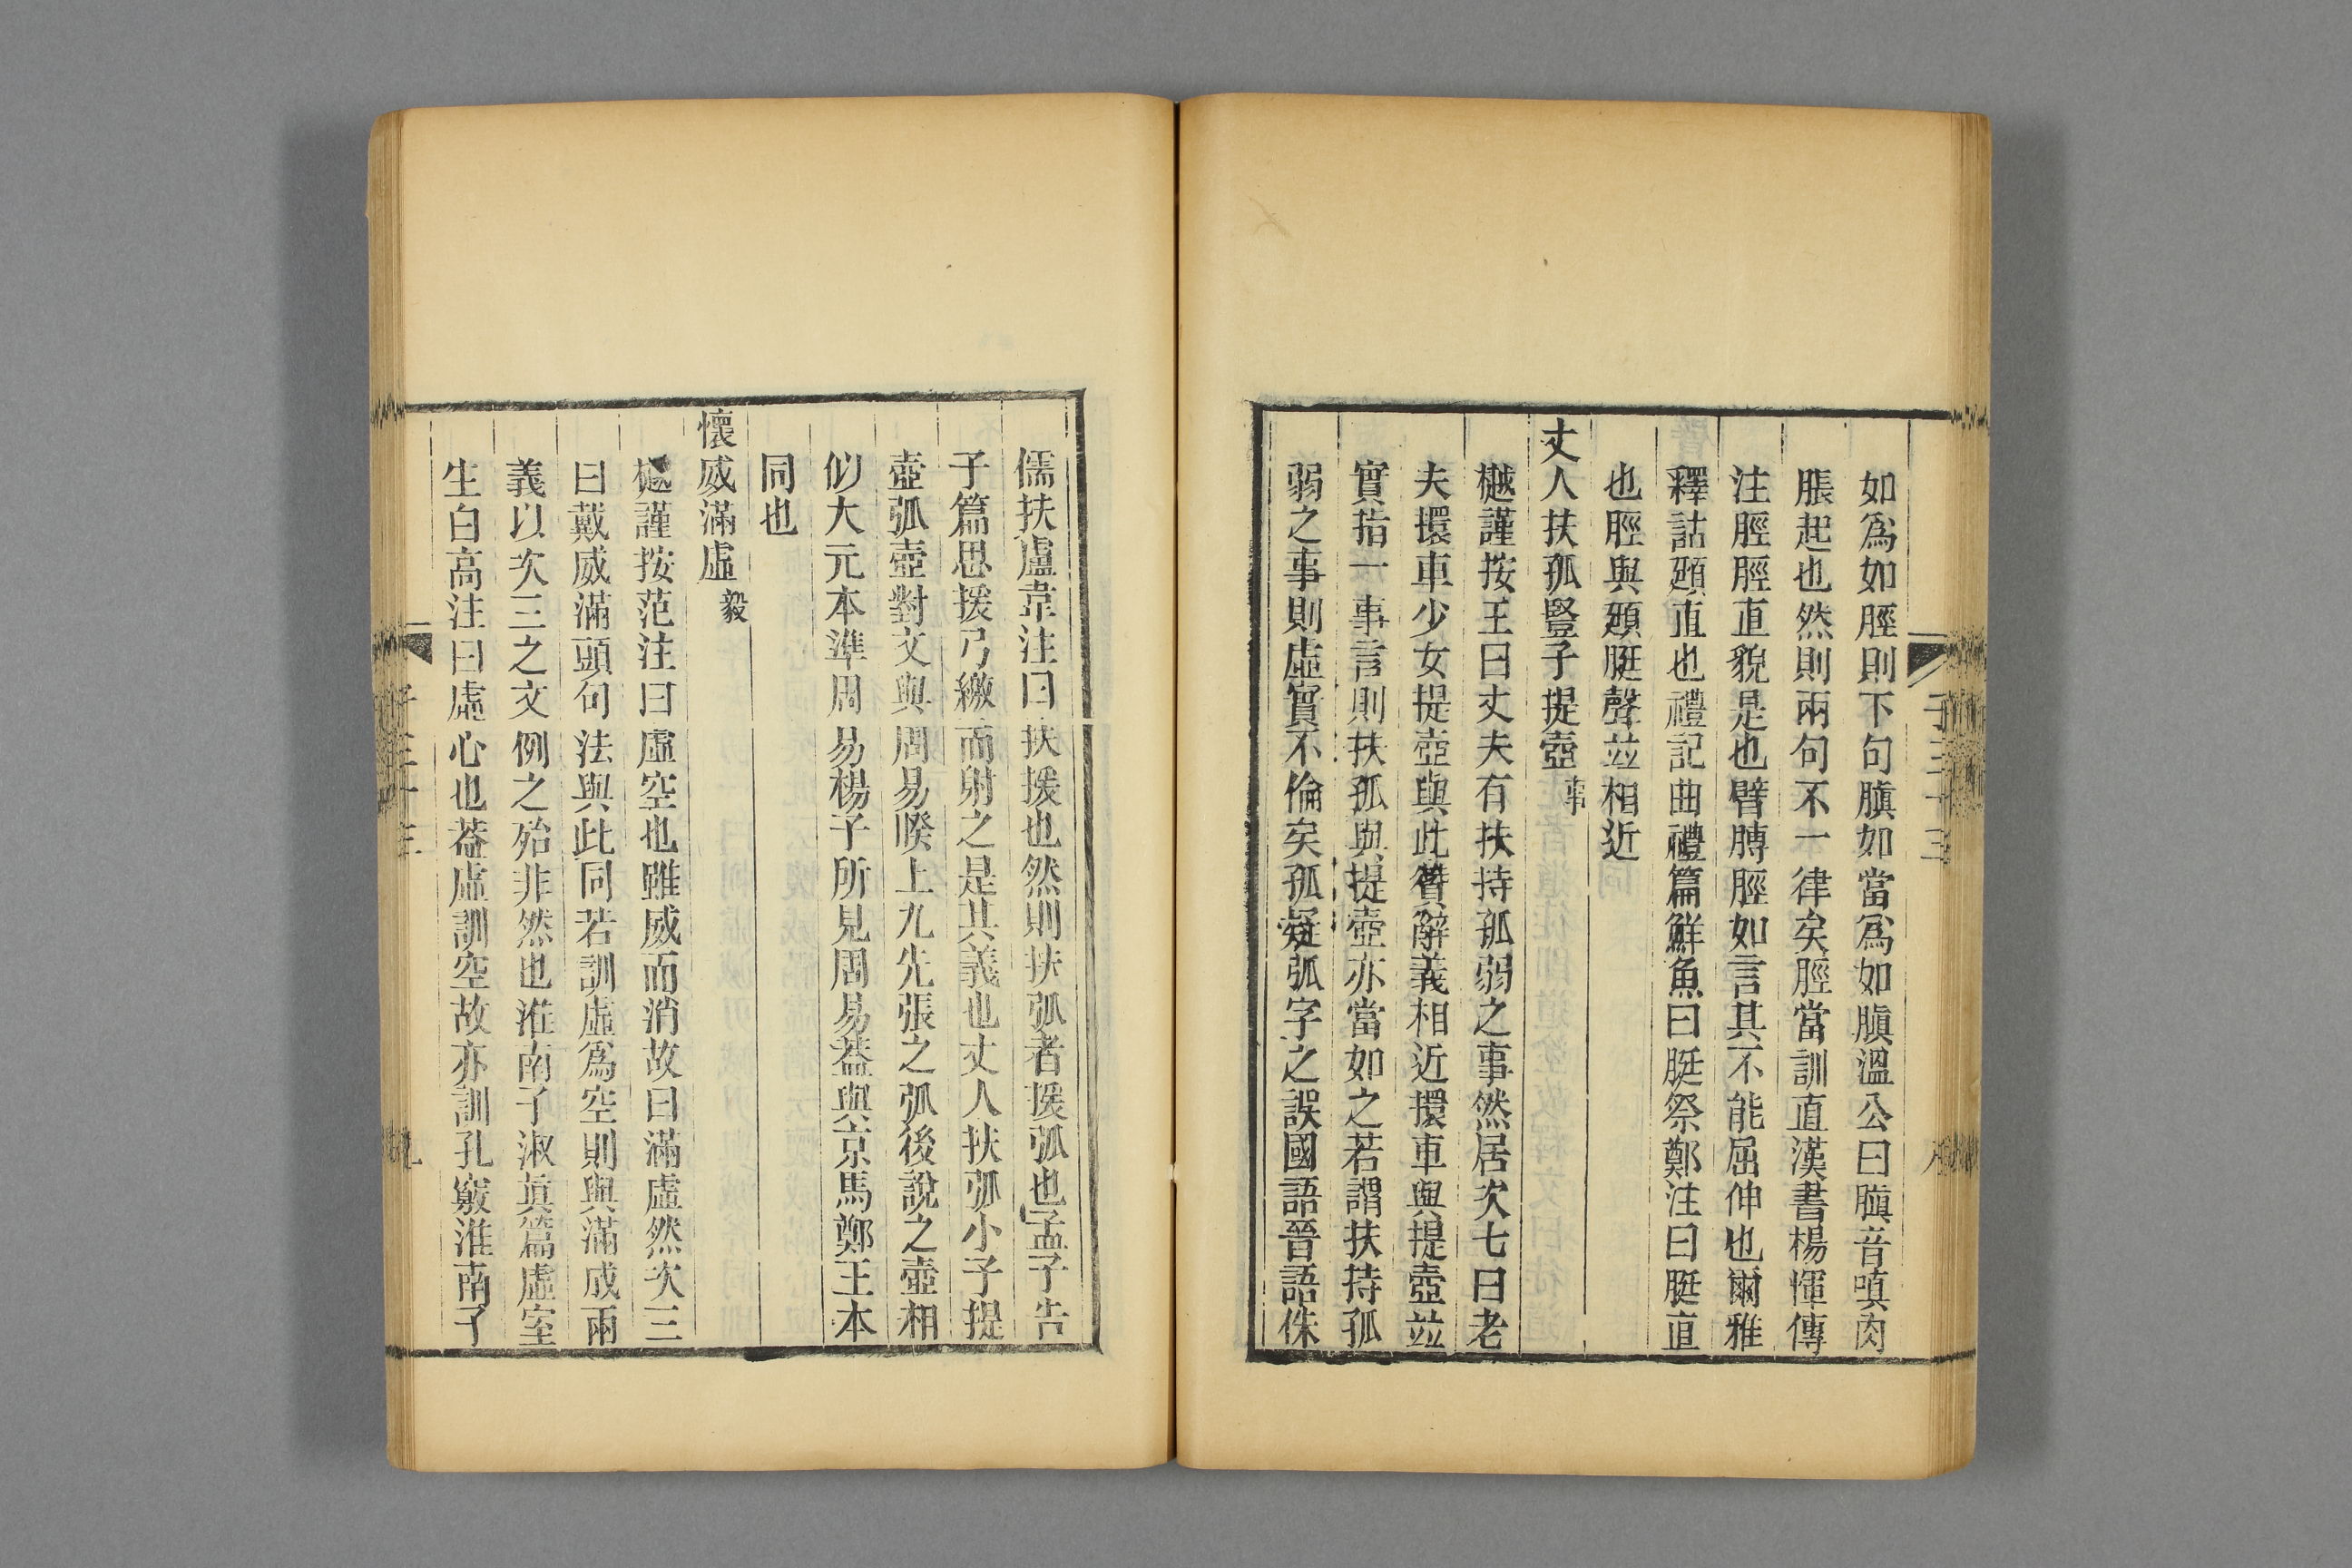 如爲如脛則下句䐜如當爲如䐜溫公曰䐜音嗔肉
脹起也然則兩句不一律矣脛當訓直漢書楊惲傳
注脛脛直貌是也臂膊脛如言其不能屈伸也爾雅
釋詁頲直也禮記曲禮篇鮮魚曰脡祭鄭注曰脡直
也脛與頲脡聲竝相近
丈人扶孤豎子提壺事
樾謹按王曰丈夫有扶持孤弱之事然居次七曰老
夫擐車少女提壺與此贊辭義相近擐車與提壺竝
實指一事言則扶孤與提壺亦當如之若謂扶持孤
弱之事則虛實不倫矣孤疑弧字之誤國語晉語侏
子三十三
八
儒扶盧韋注曰扶援也然則扶弧者援弧也孟子告
子篇思援弓繳而射之是其義也丈人扶弧小子提
壺弧壺對文與周易睽上九先張之弧後說之壺相
似大元本準周易楊子所見周易葢與京馬鄭王本
同也
懷威滿虛毅
樾謹按范注曰虛空也雖威而消故曰滿虛然次三
曰戴威滿頭句法與此同若訓虛爲空則與滿成兩
義以次三之文例之殆非然也淮南子淑真篇虛室
生白高注曰虛心也葢虛訓空故亦訓孔竅淮南子
子三十三
九